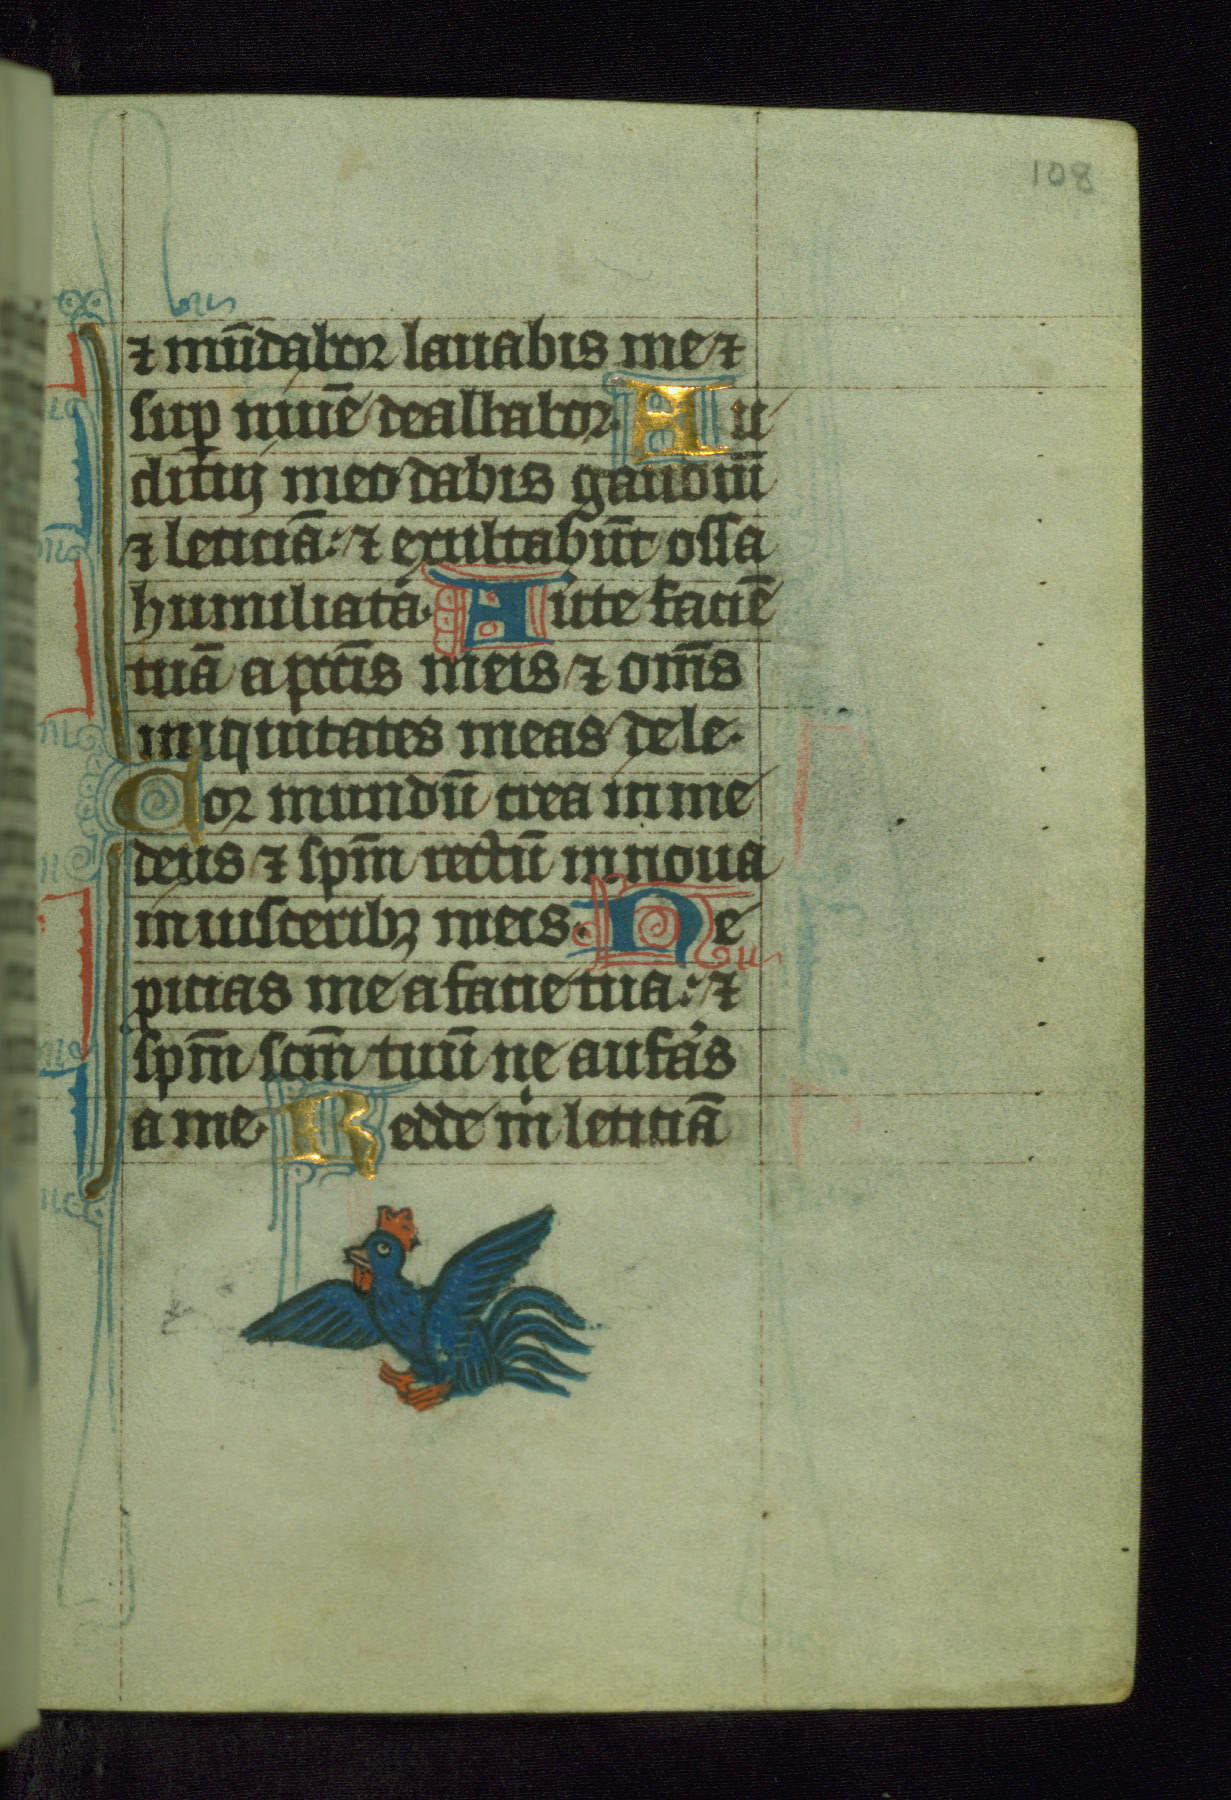 108
⁊ mūdabor lauabis me ⁊
sup̱ niuē dealbabor. Au
ditui meo dabis gaudiū
⁊ leticiā: ⁊ exultabūt ossa
humiliata. Auerte faciē
tuā a pctīs meis ⁊ om̄s
iniquitates meas dele.
Cor mundū crea in me
deus ⁊ spm̄ rectū innoua
in uisceribꝫ meis. Ne
ꝓicias me a facie tua: ⁊
spm̄ scm̄ tuū ne auferas
a me. Redde m̄ leticiā